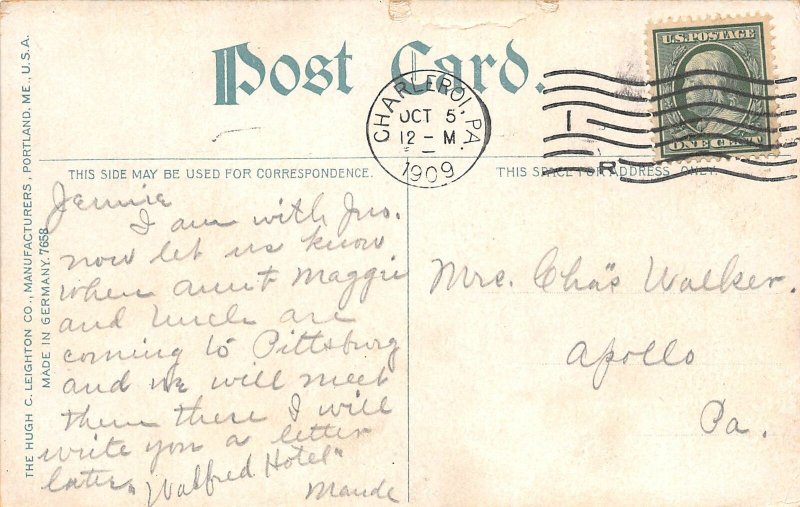 Post Card.
U.S. POSTAGE
ONE CENT
CHARLEROI, PA.
OCT 5
12 - M
1909
1
R
THIS SIDE MAY BE USED FOR CORRESPONDENCE.
THIS SPACE FOR ADDRESS ONLY.
THE HUGH C. LEIGHTON CO., MANUFACTURERS, PORTLAND, ME., U.S.A.
MADE IN GERMANY. 7658
Jennie
I am with Jno.
now let us know
when aunt Maggie
and Uncle are
coming to Pittsburg
and we will meet
them there I will
write you a letter
later "Walfred Hotel"
Maude
Mrs. Cha's Walker.
Apollo
Pa.